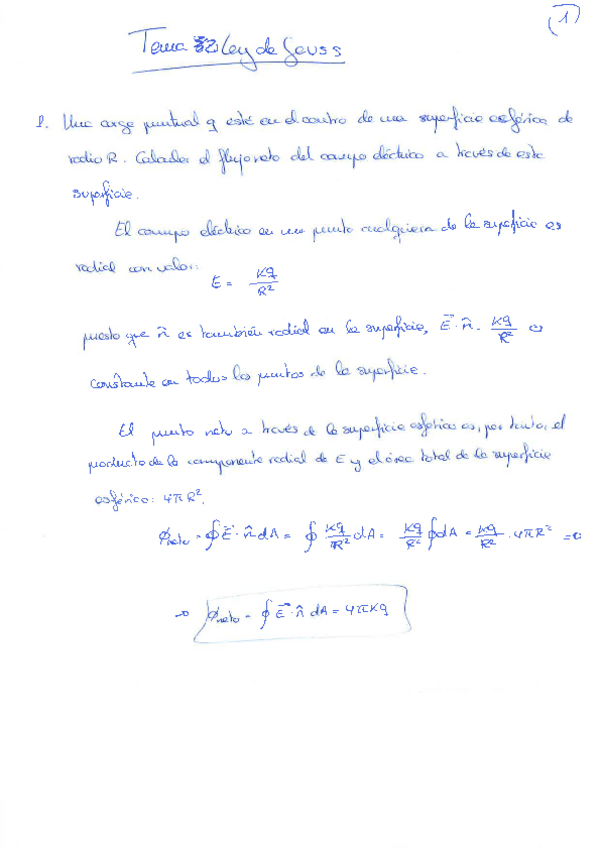 (1)
Tema 32 Ley de Gauss
1. Una carga puntual q está en el centro de una superficie esférica de
radio R. Calcular el flujo neto del campo eléctrico a través de esta
superficie.
El campo eléctrico en un punto cualquiera de la superficie es
radial con valor:
E = Kq/R²
puesto que n̂ es también radial en la superficie, E⃗·n̂ = Kq/R² es
constante en todos los puntos de la superficie.
El punto neto a través de la superficie esférica es, por tanto, el
producto de la componente radial de E y el área total de la superficie
esférica: 4πR².
Φneto = ∮E⃗·n̂ dA = ∮ Kq/R² dA = Kq/R² ∮dA = Kq/R² · 4πR² =>
=> Φneto = ∮ E⃗·n̂ dA = 4πKq